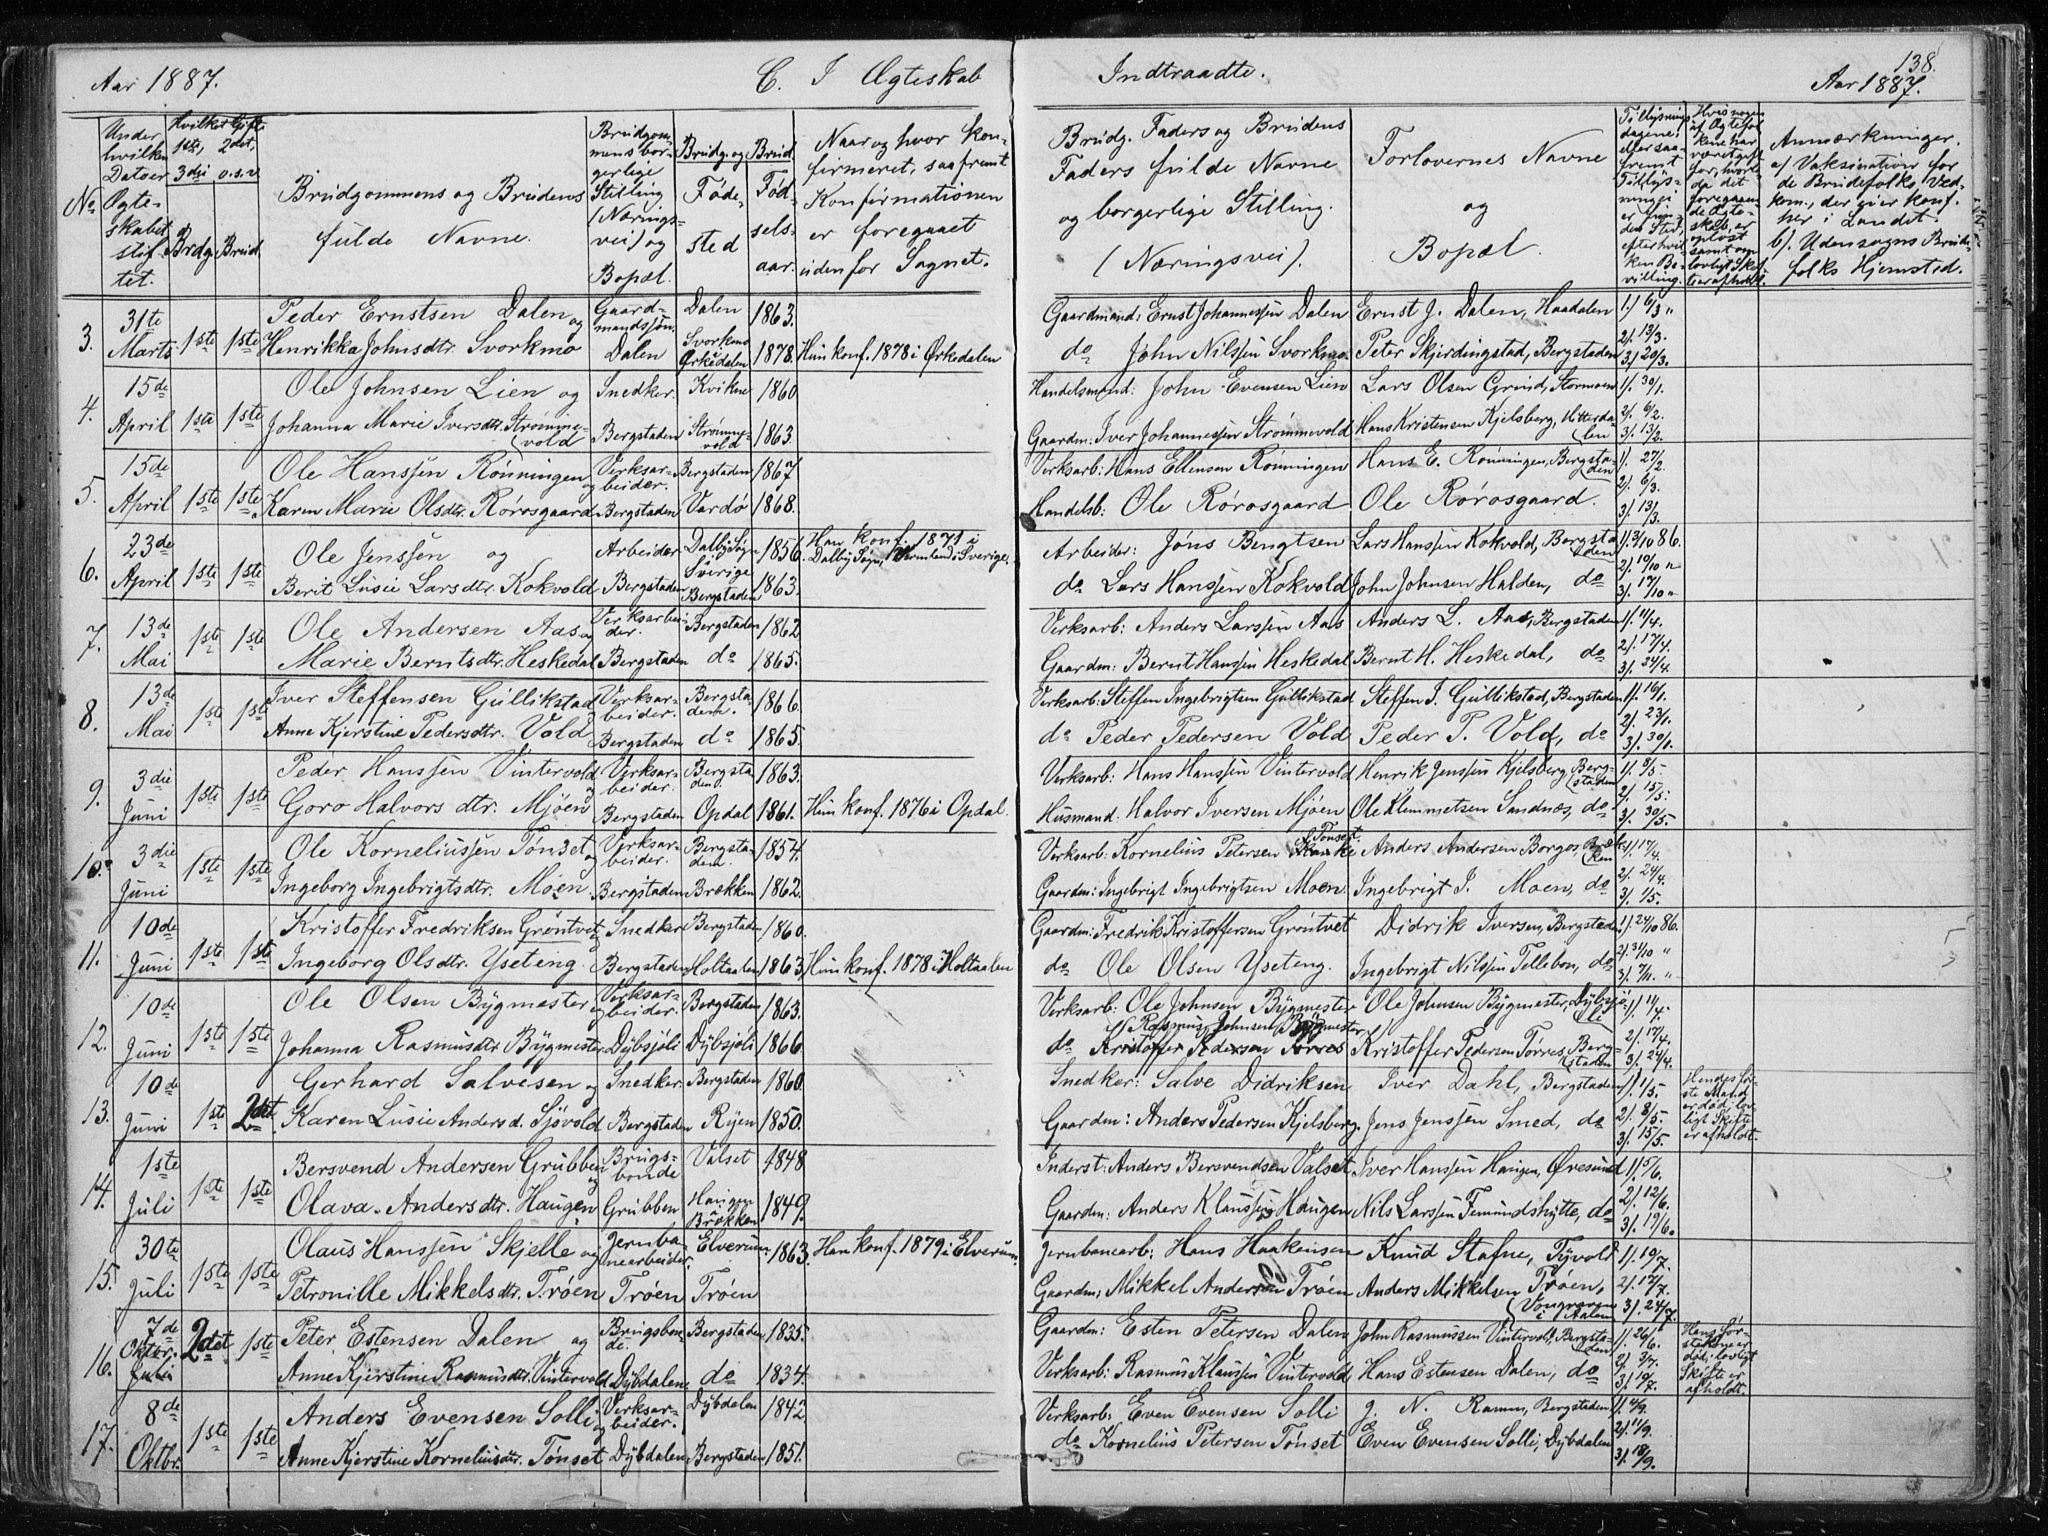 138.
Aar 1887.
C. I Ægteskab
Indtraadte.
Aar 1887.
No.
Under hvilken Datoer Ægteskabet stiftet.
Hvilket Gifte 1ste, 2det, 3die o.s.v.
Brdg.
Brud.
Brudgommens og Brudens fulde Navne.
Brudgommens borgerlige Stilling (Næringsvei) og Bopæl.
Brudg. og Brud
Fødested
Fødselsaar.
Naar og hvor Konfirmeret, saafremt Konfirmationen er foregaaet udenfor Sognet.
Brudg. Faders og Brudens Faders fulde Navne og borgerlige Stilling. (Næringsvei).
Forlovernes Navne og Bopæl.
Anmærkninger. a/ Vaksination for de Brudefolks Vedkom., der ei er konf. her i Landet. b/. Udensogns Brudefolks Hjemsted.
3.
31te Marts
1ste
1ste
Peder Ernstsen Dalen og
Henrikka Johnsdtr. Svorkmo
Gaardmandssøn. Dalen
Dalen
Svorkmo Ørkedalen
1863.
1878.
Hun konf. 1878 i Ørkedalen
Gaardmand: Ernst Johannessen Dalen
do John Nilssen Svorkmo
Ernst J. Dalen, Haadalen
Peter Skjerdingstad, Bergstaden
1./ 6/3 "
2/. 13/3.
3/. 20/3.
4.
15de April
1ste
1ste
Ole Johnsen Lien og
Johanna Marie Iversdtr. Strømmevold
Snedker. Bergstaden
Kvikne
Strømmevold
1860
1863.
Handelsmand: John Evensen Lien
Gaardm: Iver Johannessen Strømmevold
Lars Olsen Grind, Stormoen
Hans Kristensen Kjelsberg, Hitterdalen
1/. 30/1.
2/. 6/2.
3/. 13/2.
5.
15de April
1ste
1ste
Ole Hanssen Rønningen og
Karen Marie Olsdtr. Rørosgaard
Verksarbeider. Bergstaden
Bergstaden
Vardø
1867
1868.
Verksarb: Hans Ellensen Rønningen
Handelsb: Ole Rørosgaard
Hans E. Rønningen, Bergstaden
Ole Rørosgaard.
1/. 27/2.
2/. 6/3.
3/. 13/3.
6.
23de April
1ste
1ste
Ole Jenssen og
Berit Lusie Larsdtr. Kokvold
Arbeider Bergstaden
Dalby Sogn Sverige
Bergstaden
1856
1863.
Han konf. 1871 i
Dalby Sogn, Vermland i Sverige.
Arbeider: Jøns Bengtsen
do Lars Hanssen Kokvold
Lars Hanssen Kokvold, Bergstaden
John Johnsen Halden, do
1/. 3/10 86.
2/. 10/10 "
3/. 17/10 "
7.
13de Mai
1ste
1ste
Ole Andersen Aas og
Marie Berntsdtr. Heskedal
Verksarbeider. Bergstaden
Bergstaden
do
1862
1865.
Verksarb: Anders Larssen Aas
Gaardm: Bernt Hanssen Heskedal
Anders L. Aas, Bergstaden
Bernt H. Heskedal, do
1/. 11/4.
2/. 17/4.
3/. 24/4.
8.
13de Mai
1ste
1ste
Iver Steffensen Gullikstad
Anne Kjerstine Pedersdtr. Vold
Verksarbeider. Bergstaden
Bergstaden.
do
1866.
1865.
Verksarb: Steffen Ingebrigtsen Gullikstad
do Peder Pedersen Vold
Steffen I. Gullikstad, Bergstaden
Peder P. Vold, do
1/. 16/1.
2/. 23/1.
3/. 30/1.
9.
3die Juni
1ste
1ste
Peder Hanssen Vintervold og
Goro Halvorsdtr. Mjøen
Verksarbeider. Bergstaden
Bergstaden.
Opdal
1863.
1861.
Hun konf. 1876 i Opdal.
Verksarb: Hans Hanssen Vintervold
Husmand: Halvor Iversen Mjøen
Henrik Jenssen Kjelsberg, Bergstaden
Ole Klemmetsen Sandnæs, do
1/. 8/5.
2/. 15/5.
3/. 30/5.
10.
3die Juni
1ste
1ste
Ole Korneliussen Tønset og
Ingeborg Ingebrigtsdtr. Moen
Verksarbeider. Bergstaden
Bergstaden.
Brækken
1854.
1862.
Verksarb: Kornelius Petersen Tønset
Gaardm: Ingebrigt Ingebrigtsen Moen
Anders Andersen Borgos, Brækken
Ingebrigt I. Moen, do
1/. 17/4.
2/. 24/4.
3/. 1/5.
11.
10de Juni
1ste
1ste
Kristoffer Fredriksen Grøntvet
Ingeborg Olsdtr. Yseteng
Snedker Bergstaden
Bergstaden
Holtaalen
1860.
1863.
Hun konf. 1878 i Holtaalen
Gaardm: Fredrik Kristoffersen Grøntvet
do Ole Olsen Yseteng.
Didrik Iversen, Bergstaden
Ingebrigt Nilssen Tellebon, do
1/. 24/10 86.
2/. 31/10 "
3/. 7/11. "
12.
10de Juni
1ste
1ste
Ole Olsen Bygmester og
Johanna Rasmusdtr Bygmester
Verksarbeider. Dybsjøli
Bergstaden
Dybsjøli
1863.
1866
Verksarb: Ole Johnsen Bygmester
Rasmus Johnsen Bygmester
do Kristoffer Pedersen Tørres
Ole Johnsen Bygmester, Dybsjøli
Kristoffer Pedersen Tørres, Bergstaden
1/. 11/4.
2/. 17/4.
3/. 24/4.
13.
10de Juni
1ste
2det.
Gerhard Salvesen og
Karen Lusie Andersd. Sjøvold
Snedker. Bergstaden
Bergstaden
Ryen
1860.
1850.
Snedker: Salve Didriksen
Gaardm: Anders Pedersen Kjelsberg.
Iver Dahl, Bergstaden
Jens Jenssen Smed, do
1/. 1/5.
2/. 8/5.
3/. 15/5.
Hendes første Mand er død, lovligt Skifte er afholdt.
14.
1ste Juli
1ste
1ste
Bersvend Andersen Grubben og
Olava Andersdtr. Haugen
Brugsbonde Grubben
Valset
Haugen Brækken
1848
1849.
Inderst: Anders Bersvendsen Valset
Gaardm: Anders Klaussen Haugen
Iver Hanssen Haugen, Øvesund
Nils Larssen Femundshytte, do
1/. 5/6.
2/. 12/6.
3/. 19/6.
15.
30te Juli
1ste
1ste
Olaus Hanssen Skjelle og
Petronille Mikkelsdtr. Trøen
Jernbanearbeider. Trøen
Elverum
Trøen
1863.
Han konf. 1879 i Elverum
Jernbanearb: Hans Haakensen
Gaardm: Mikkel Andersen Trøen
Knud Stafne, Tyvold
Anders Mikkelsen Trøen, Vongraven i Aalen
1/. 10/7.
2/. 17/7.
3/. 24/7.
16.
7de Oktbr. Juli
2det
1ste
Peter Estensen Dalen og
Anne Kjerstine Rasmusdtr. Vintervold
Brugsbonde. Dybdalen
Bergstaden
do
1835.
1834.
Gaardm: Esten Petersen Dalen
Verksarb: Rasmus Klaussen Vintervold
John Rasmussen Vintervold, Bergstaden
Hans Estensen Dalen, do
1/. 26/6.
2/. 3/7.
3/. 10/7.
Hans første Kone er død, lovligt Skifte er afholdt.
17.
8de Oktbr.
1ste
1ste
Anders Evensen Solli og
Anne Kjerstine Korneliusdtr. Tønset
Verksarbeider. Dybdalen
Dybdalen
Bergstaden
1842
1851.
Verksarb: Even Evensen Solli
do Kornelius Petersen Tønset
J. N. Ramm, Bergstaden
Even Evensen Solli, Dybdalen
1/. 4/9.
2/. 11/9.
3/. 18/9.